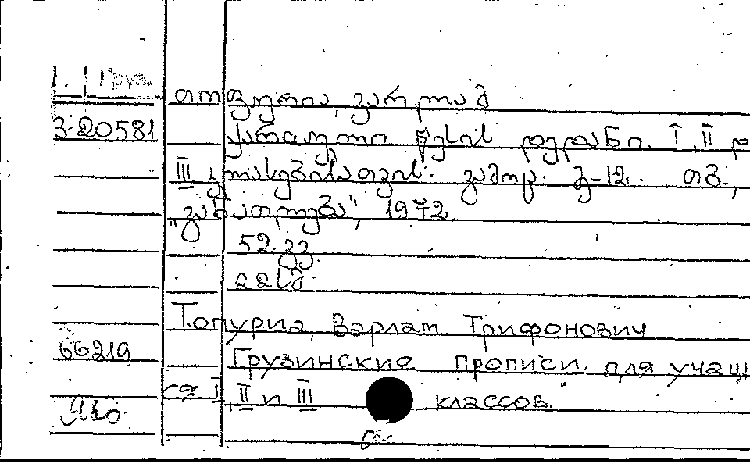 თოფურია, ვარლამ
3-20581
ქართული წერის დედანი. I, II დ
III კლასებისათვის. გამოც. მე-12. თბ.,
„განათლება", 1972
52 გვ.
Топуриа, Варлам Трифонович
66219
Грузинские прописи для учащ
ся I, II и III классов.